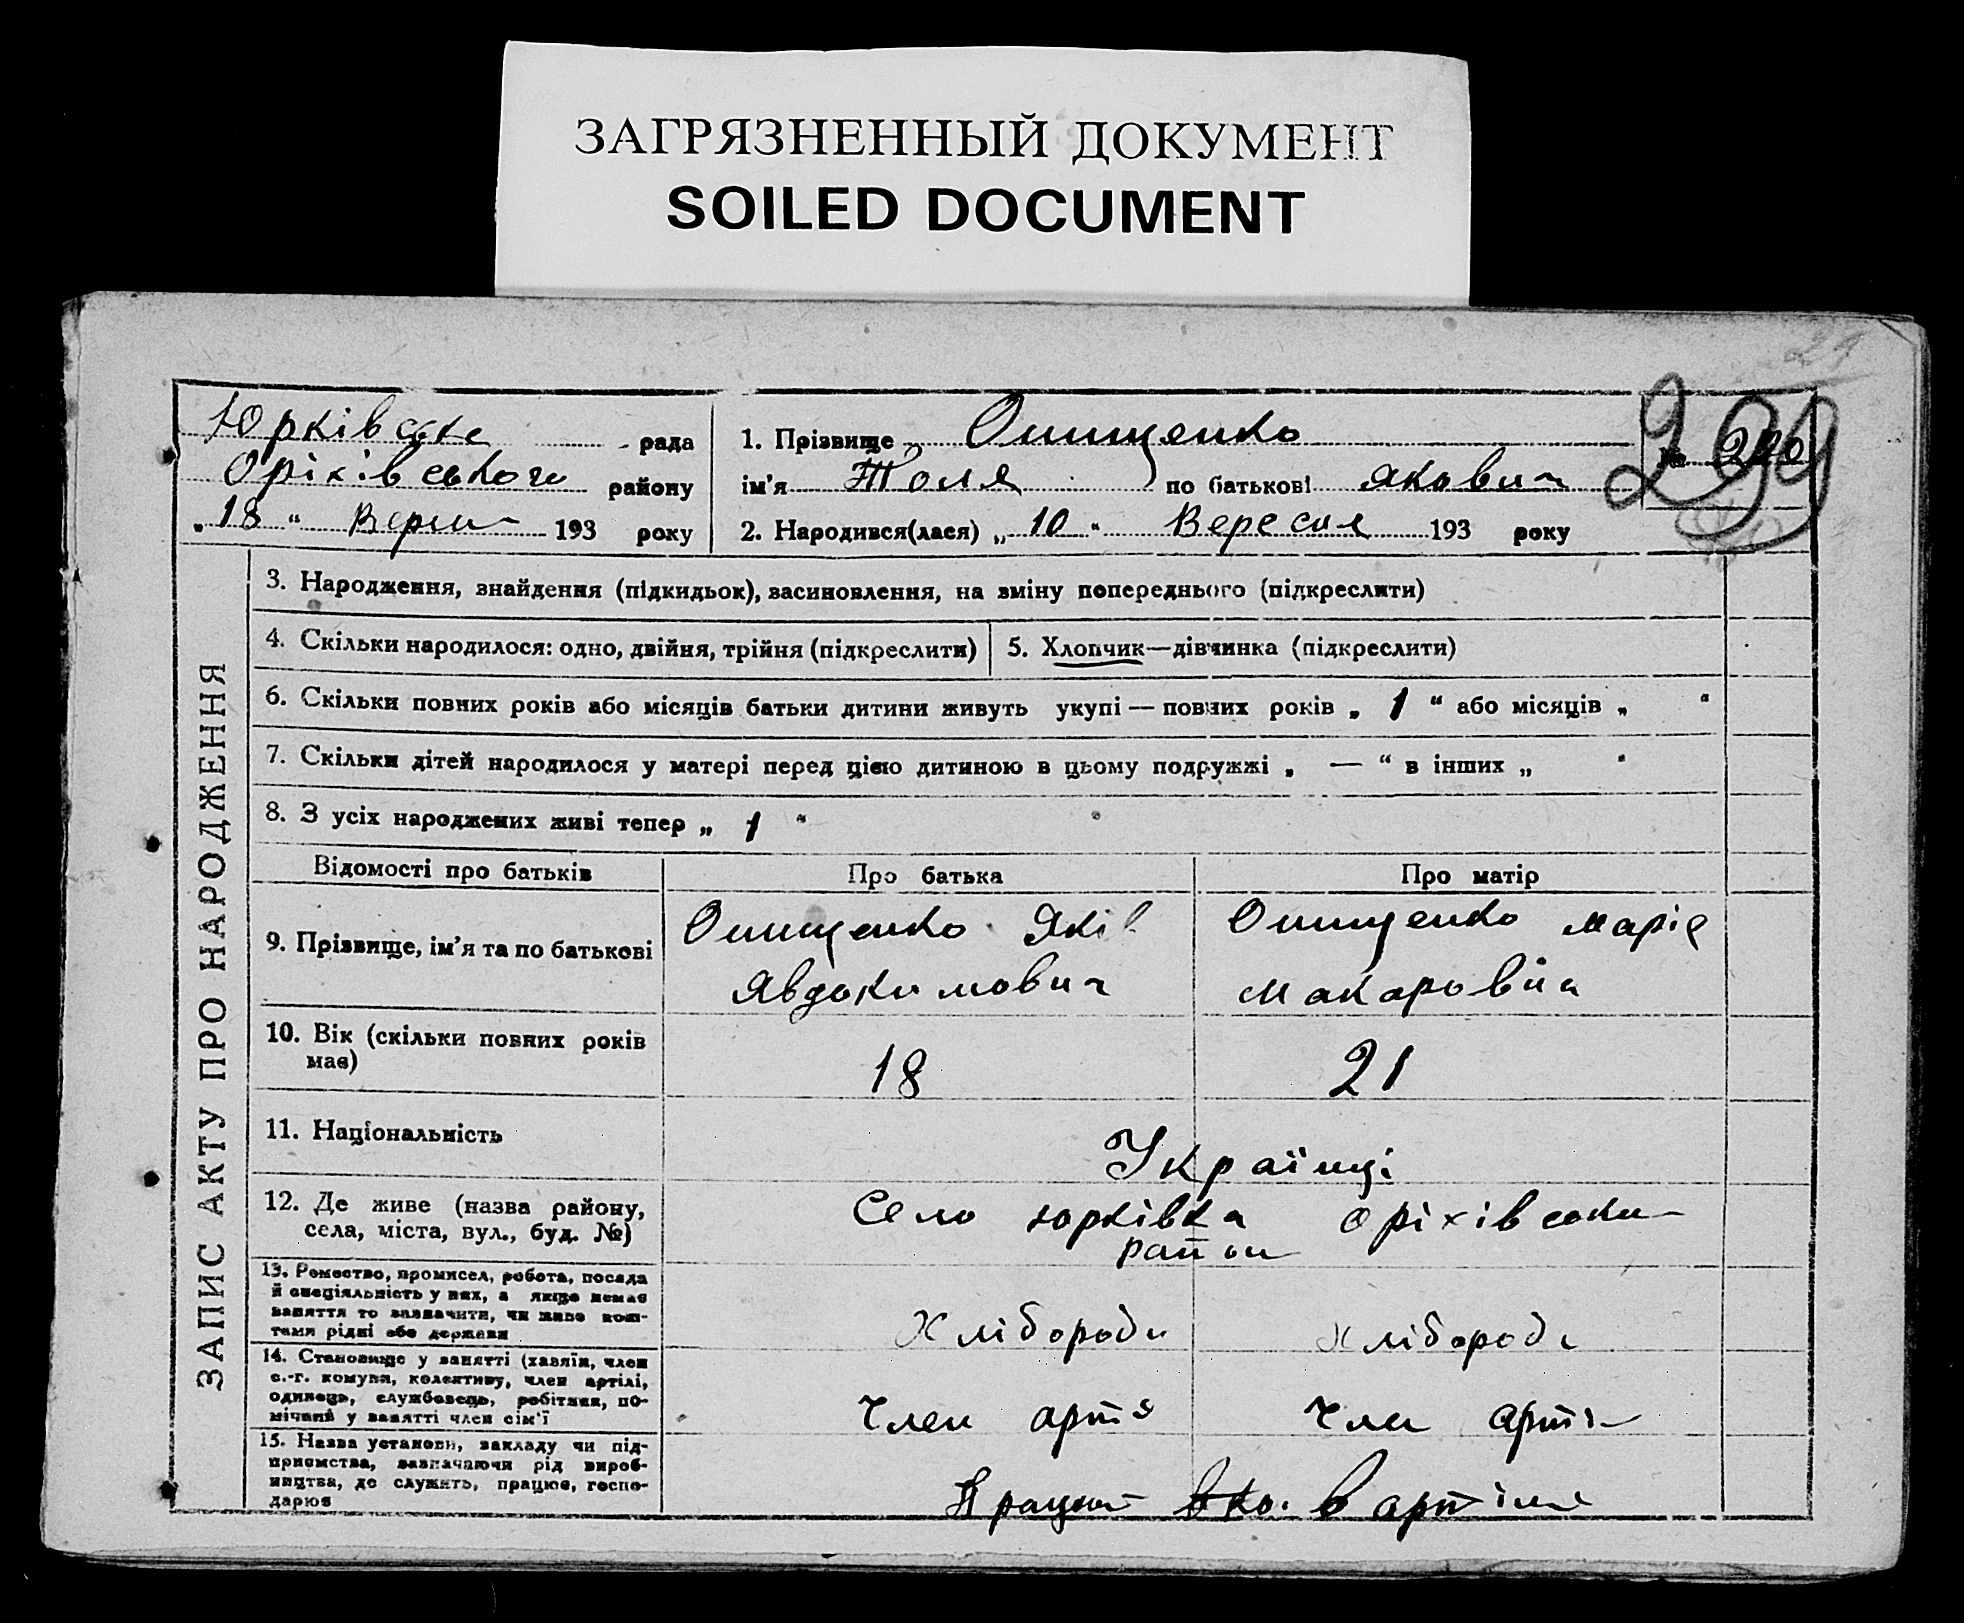 ЗАГРЯЗНЕННЫЙ ДОКУМЕНТ
SOILED DOCUMENT
29
299
Юрківська рада
Оріхівського району
„ 18 “ Верес 193 року
1. Прізвище Онищенко
ім'я Толя по батькові Якович
2. Народився(лася) „ 10 “ Вересня 193 року
№
ЗАПИС АКТУ ПРО НАРОДЖЕННЯ
3. Народження, знайдення (підкидьок), васиновлення, на вміну попереднього (підкреслити)
4. Скільки народилося: одно, двійня, трійня (підкреслити)
5. Хлопчик—дівчинка (підкреслити)
6. Скільки повних років або місяців батьки дитини живуть укупі — повних років „ 1 “ або місяців „ “
7. Скільки дітей народилося у матері перед цією дитиною в цьому подружжі „ — “ в інших „ “
8. З усіх народжених живі тепер „ 1 “
Відомості про батьків Про батька Про матір
9. Прізвище, ім'я та по батькові
Онищенко Яків
Явдокимович
Онищенко Марія
Макаровна
10. Вік (скільки повних років
має)
18 21
11. Національність
Українці
12. Де живе (назва району,
села, міста, вул., буд. №)
Село Юрківка Оріхівськ
район
13. Ремество, промисел, робота, посада
й спеціяльність у них, а якщо немає
заняття то зазначити, чи живе кош-
тами рідні або держави
Хлібороби Хлібороб
14. Становище у занятті (хазяїн, член
с.-г. комуни, колективу, член артілі,
одинець, службовець, робітник, по-
мічний у занятті член сім'ї
Член арті Член арті
15. Назва установи, закладу чи під-
приємства, вазначаючи рід вироб-
ництва, де служить, працює, госпо-
дарює
Працюют в артілі